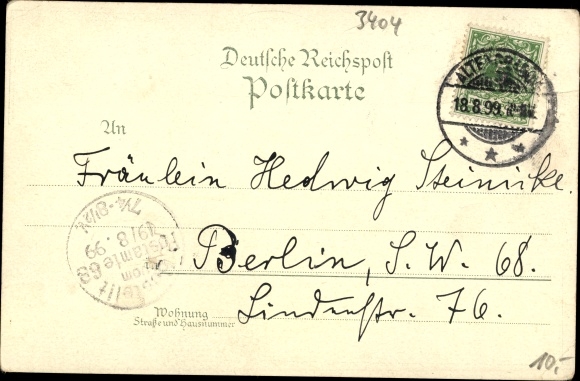 3404
Deutsche Reichspost
Postkarte
18.8.99.
An
Fräulein Hedwig Steinicke.
Berlin, S.W. 68.
Lindenstr. 76.
Wohnung
Straße und Hausnummer
Bestellt
vom
Postamte 68
19/8.99
7¼-8½V.
10,-